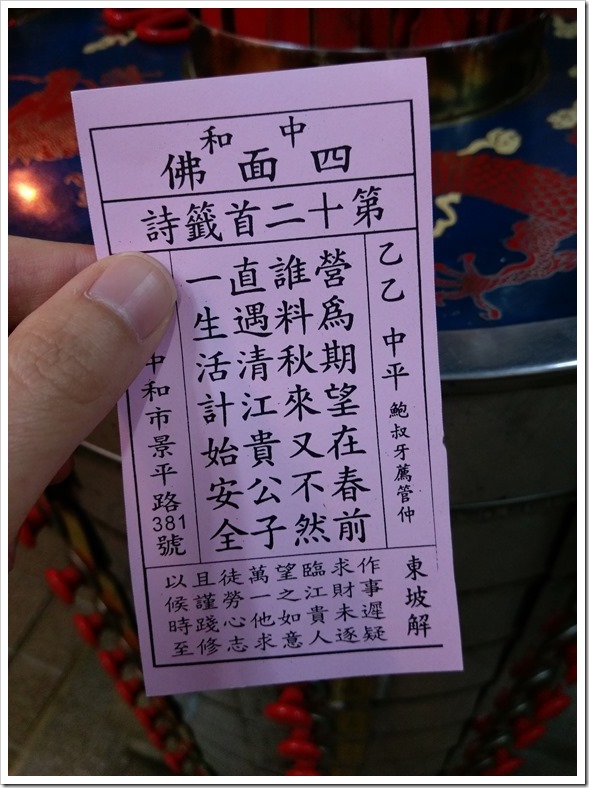 中和
四面佛
第十二首籤詩
乙乙 中平 鮑叔牙薦管仲
營爲期望在春前
誰料秋來又不然
直遇清江貴公子
一生活計始安全
中和市景平路381號
東坡解
作事遲疑
求財未遂
臨江貴人
望之如意
萬一他求
徒勞心志
且謹踐修
以候時至